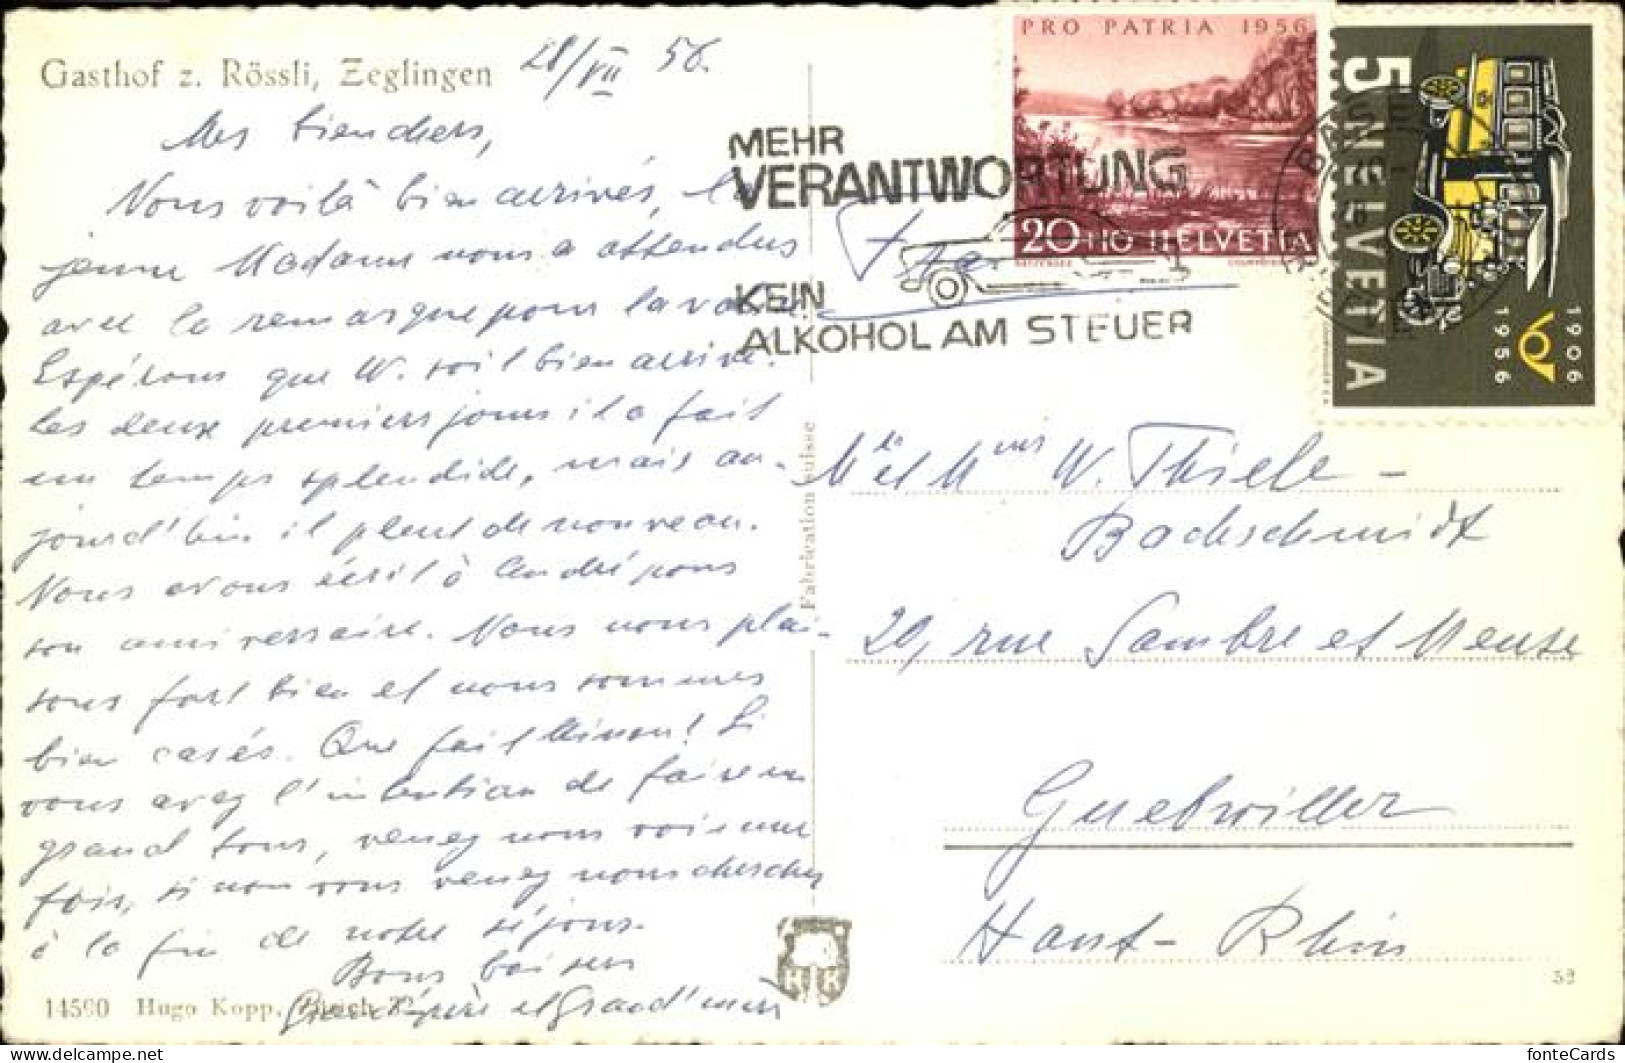 Gasthof z. Rössli, Zeglingen 28/VII 56.
Mes bien chers,
Nous voilà bien arrivés, la
jeune Madame nous a attendus
avec la remarque pour la
Espérons que W. soit bien arrivé.
Les deux premiers jours il a fait
un temps splendide, mais au-
jourd'hui il pleut de nouveau.
Nous avons écrit à André pour
son anniversaire. Nous nous plai-
sons fort bien et nous sommes
bien casés. Que fait Ninon! Si
vous avez l'intention de faire un
grand tour, venez nous voir une
fois, si non vous venez nous chercher
à la fin de notre séjour.
Bons baisers
Grand'père et Grand'mère
14590 Hugo Kopp, Zürich
Fabrication suisse
PRO PATRIA 1956
20+10 HELVETIA
5 HELVETIA
1906
1956
MEHR
VERANTWORTUNG
KEIN
ALKOHOL AM STEUER
Mle et Mr W. Thiele -
Bachschmidt
29, rue Sambre et Meuse
Guebwiller
Haut-Rhin
K K
53
www.delcampe.net
fonteCards